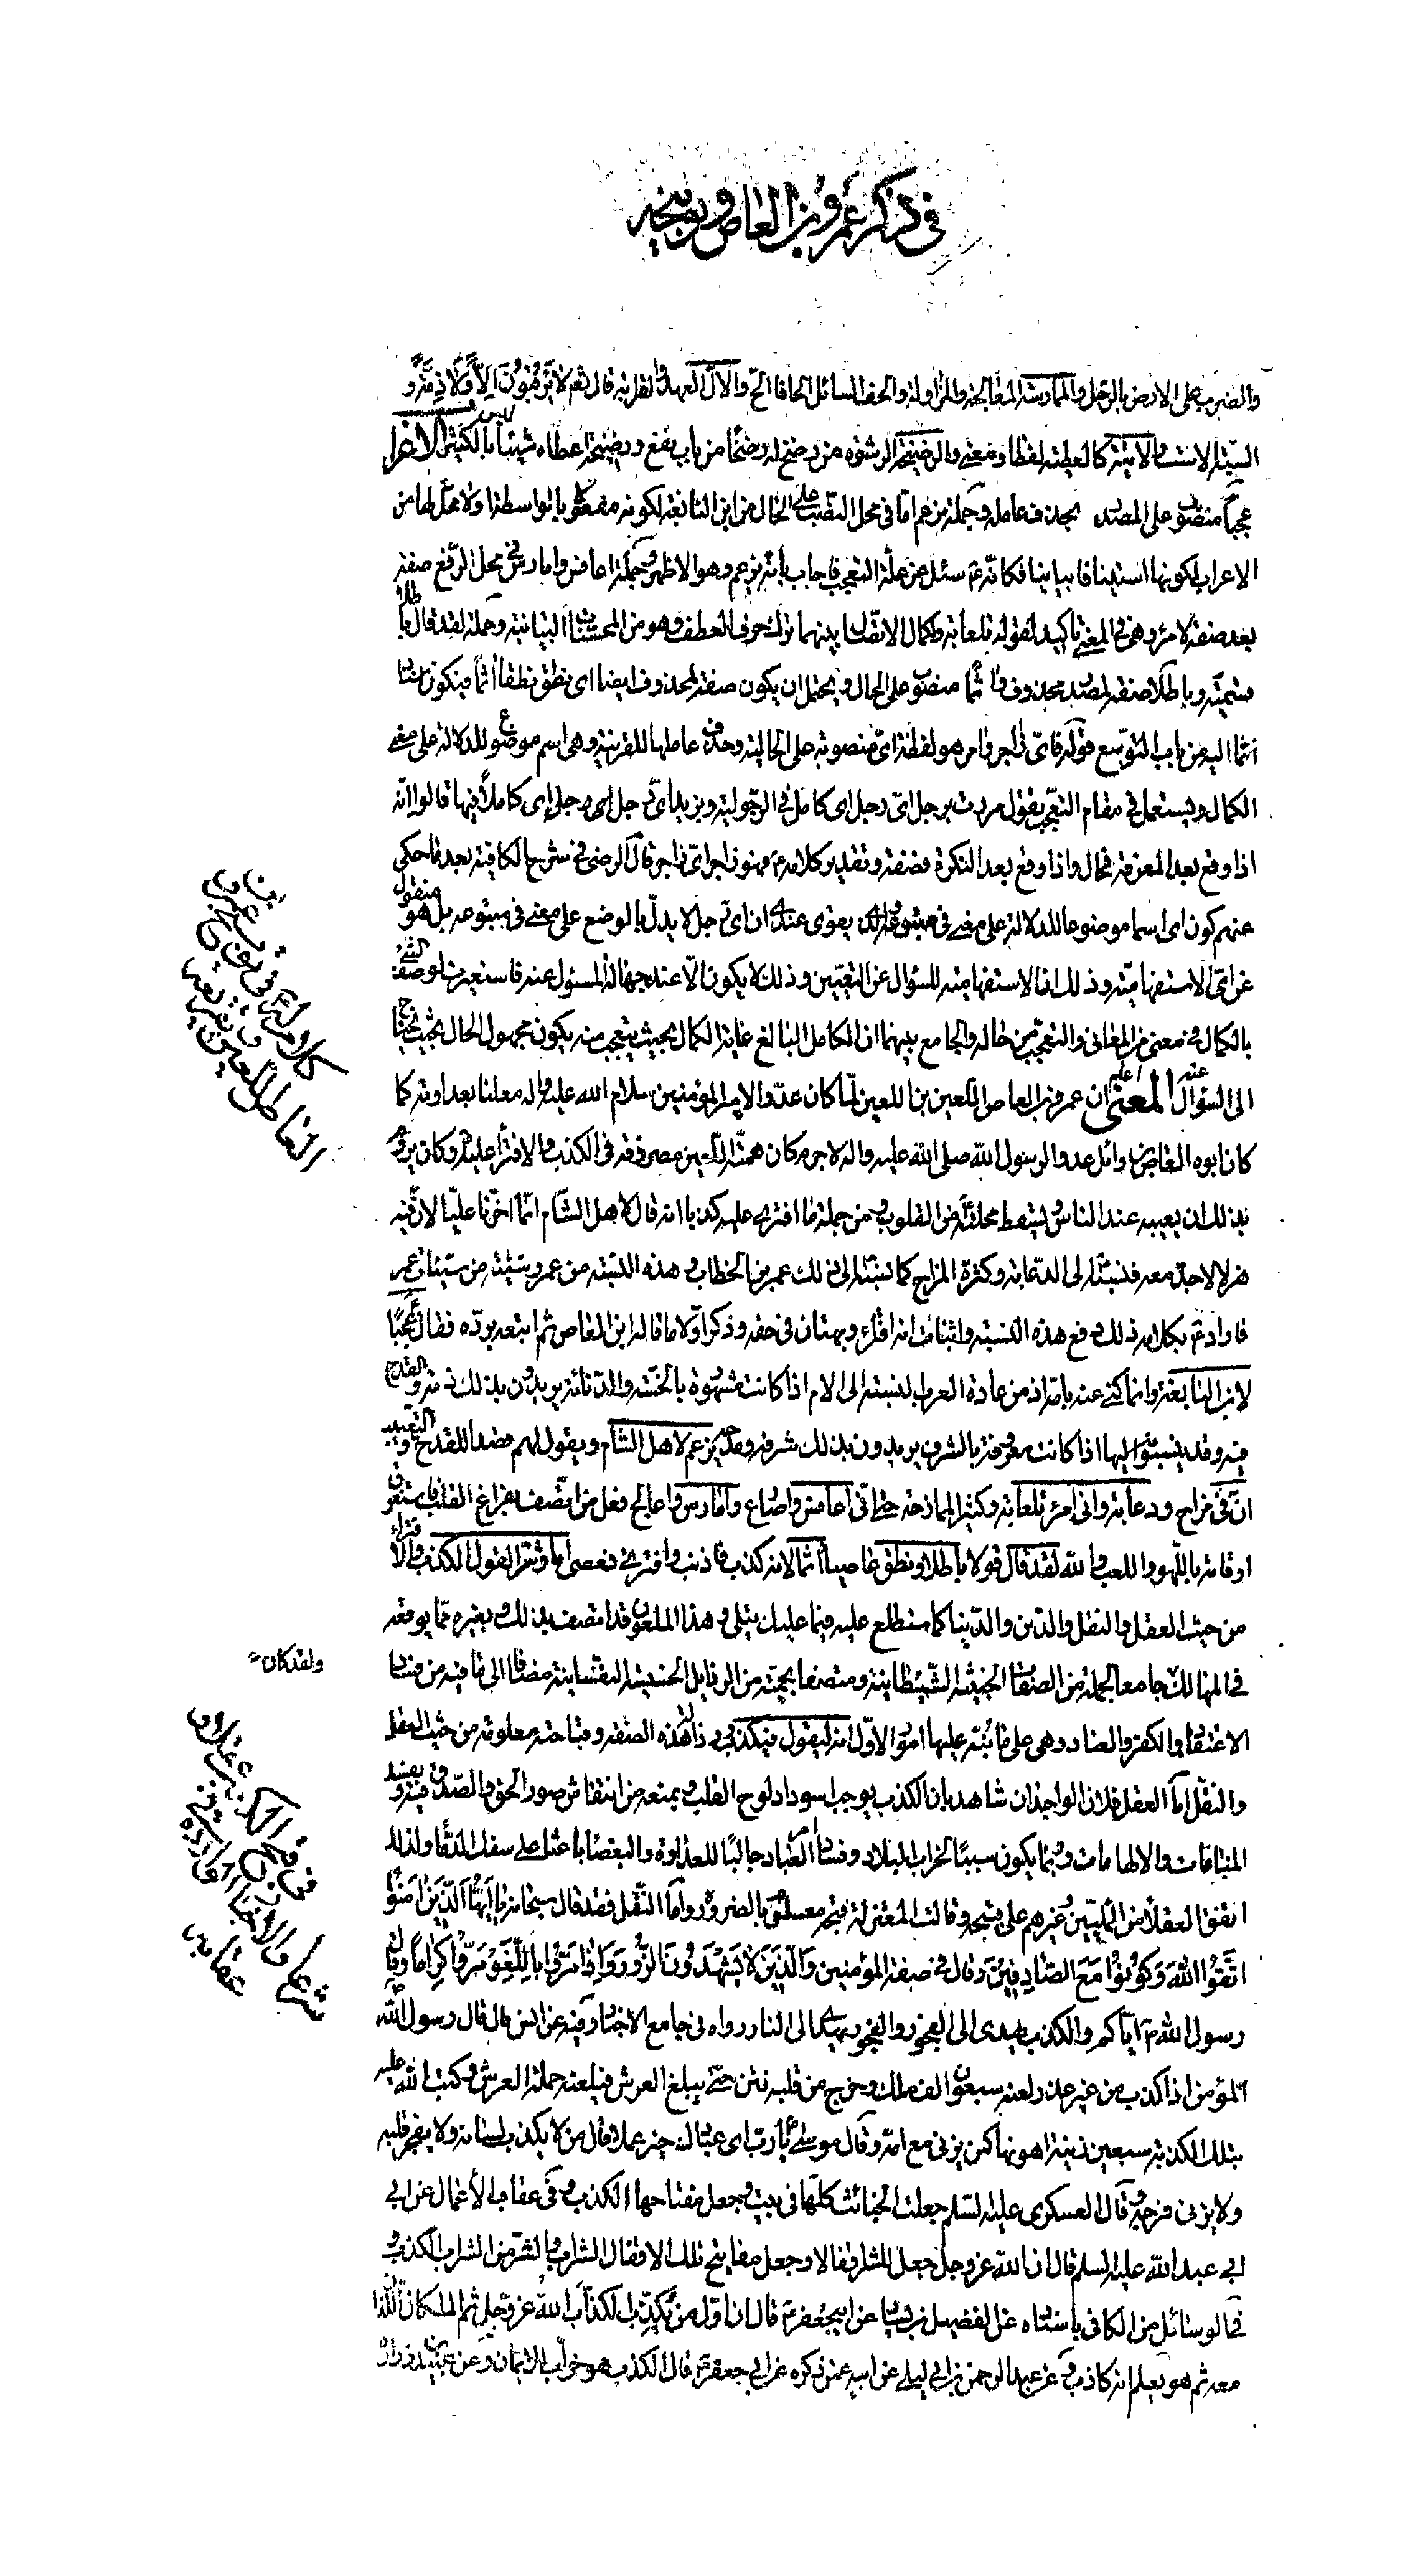 في ذكر عمرو بن العاص وتوبيخه
والضرب على الارض بالرجل والممارسة المعالجة والمزاولة والحف السائل الحافا الح والالّ العهد والقرابة قال تعم لا يرقبون الّا ولا ذمة و
السبّة الاست والاتية كالعطية لفظا ومعنى والرضيخة الرشوه من رضخ له رضخا من باب نفع ورضيخة اعطاه شيئا ليس بالكثير الاعراب
عجبا منصوب على المصدر بحذف عامله وجملة يزعم امّا في محل النصب على الحال من ابن النابغة لكونه مفعولا بالواسطة او لا محلّ لها من
الاعراب لكونها استينافا بيانيا فكانّه ع سئل عن علّة التعجب فاجاب بأنّه يزعم وهو الاظهر وجملة اعافس وامارس في محل الرّفع صفة
بعد صفة لامرء وهي في المعنى تاكيد لقوله تلعابة ولكمال الاتصال بينهما ترك حرف العطف وهو من المحسنات البيانية وجملة لقد قال باطلا
قسمية وباطلا صفة لمصدر محذوف واثما منصوب على الحال ويحتمل ان يكون صفة لمحذوف ايضا اى نطق نطقا اثما فيكون اسناد
اثما اليه من باب التوسع قوله فاىّ زاجر وامر هو لفظة اىّ منصوبة على الحالية وحذف عاملها للقرينة وهى اسم موضوع للدلالة على معنى
الكمال ويستعمل في مقام التعجب يقول مررت برجل اىّ رجل اى كامل في الرجولية وبزيد اىّ رجل اى رجل اى كاملا فيها قالوا انه
اذا وقع بعد المعرفة فحال واذا وقع بعد النكرة فصفة وتقدير كلامه ع فهو زاجر اىّ زاجر قال الرضى في شرح الكافية بعد ما حكى
عنهم كون اى اسما موضوعا للدلالة على معنى في متبوعه الذى يقوى عندى ان اىّ رجل لا يدلّ بالوضع على معنى في متبوعه بل هو منقول
عن اىّ الاستفهاميّة وذلك ان الاستفهامية للسؤال عن التعيين وذلك لا يكون الّا عند جهالة المسئول عنه فاستعيرت لوصف الشئ
بالكمال في معنى من المعانى والتعجب من حاله والجامع بينهما ان الكامل البالغ غاية الكمال بحيث يتعجب منه يكون مجهول الحال بحيث يحتاج
الى السؤال عنه المعنى اعلم ان عمرو بن العاص اللعين بن اللعين لمّا كان عدّوا لامير المؤمنين سلام الله عليه واله معلنا بعداوته كما
كان ابوه العاص بن وائل عدوا لرسول الله صلى الله عليه واله لاجرم كان همّته مصروفة في الكذب والافتراء عليه وكان يروم
بذلك ان يعيبه عند الناس ويسقط محلّه من القلوب ومن جملة ما افترى عليه كذبا انه قال لاهل الشام انّما اخّرنا عليّا لانّ فيه
هزلا لا جدّ معه فنسبه الى الدعابة وكثرة المزاح كما نسبه الى ذلك عمر بن الخطاب وهذه النسبة من عمرو سيئة من سيئات عمر
فاراد ع بكلامه ذلك دفع هذه النسبة واثبات انه افتراء وبهتان في حقه وذكر اوّلا ما قاله ابن العاص ثم اتبعه بردّه فقال ع عجبا
لابن النابغة وانما كنى عنه بامّه اذ من عادة العرب النسبة الى الام اذا كانت مشهورة بالخسّة والدنائة يريدون بذلك ذمّه والقدح
فيه وقد ينسبون اليها اذا كانت معروفة بالشرف يريدون بذلك شرفه ومدحه يزعم لاهل الشام ويقول لهم قصدا للقدح والتعييب
انّ فىّ مزاح ودعابة وانى امرء تلعابة وكثير الممازحة حتى انى اعافس واصارع وامارس واعالج فعل من اتصف بفراغ القلب فاستغرق
اوقاته باللّهو واللعب والله لقد قال قولا باطلا ونطق عاصيا اثما لانه كذب فاذنب وافترى فعصى اما وشرّ القول الكذب والافتراء
من حيث العقل والنقل والدّين والدّينا كما ستطلع عليه فيما عليك يتلى وهذا الملعون قد اتصف بذلك وبغيره ممّا يوقعه
في المهالك جامعا لجملة من الصفات الخبيثة الشيطانية ومتصفا بجمّة من الرذايل الخسيسة النفسانية مضافا الى ما فيه من فساد
الاعتقاد والكفر والعناد وهى على ما نبّه عليها امور الاوّل انه ليقول فيكذب ورذالة هذه الصفة وقباحته معلومة من حيث العقل
والنقل امّا العقل فلان الواجدان شاهد بان الكذب يوجب اسوداد لوح القلب ويمنعه من انتقاش صور الحق والصّدق فيه ويفسد
المنامات والالهامات وربما يكون سببا لخراب البلاد وفساد امر العباد جالبا للعداوة والبغضاء باعثا على سفك الدماء ولذلك
اتفق العقلاء من المليّين وغيرهم على قبحه وقالت المعتزلة قبحه معلوم بالضرورة وامّا النّقل فقد قال سبحانه يا ايها الذين امنوا
اتقوا الله وكونوا مع الصادقين وقال في صفة المؤمنين والذين لا يشهدون الزور واذا مرّوا باللغو مرّوا كراما وقال
رسول الله ص ايّاكم والكذب فان الكذب يهدى الى الفجور والفجور يهدى الى النار رواه في جامع الاخبار وفيه عن انس قال قال رسول الله
المؤمن اذا كذب من غير عذر لعنه سبعون الف ملك وخرج من قلبه نتن حتى يبلغ العرش فيلعنه حملة العرش وكتب الله عليه
بتلك الكذبة سبعين زنية اهونها كمن يزنى مع امّه وقال موسى ع يا ربّ اى عبادك خير عملا قال من لا يكذب لسانه ولا يفجر قلبه
ولا يزنى فرجه وقال العسكرى عليه السلم جعلت الخبائث كلّها في بيت وجعل مفتاحها الكذب وفي عقاب الأعمال عن ابى
ابى عبد الله عليه السلم قال ان الله عز وجل جعل للشر اقفالا وجعل مفاتيح تلك الاقفال الشراب والشر من الشراب الكذب و
في الوسائل من الكافى باسناده عن الفضيل بن يسار عن ابيجعفر ع قال ان اوّل من يكذّب الكذّاب الله عز وجل ثم الملكان اللذان
معه ثم هو يعلم انه كاذب وعن عبد الرحمن بن ابى ليلى عن ابيه عمّن ذكره عن ابى جعفر ع قال الكذب هو خراب الايمان وعن
كلامه ع في توبيخ
العاص اللعين
ولقد كان
في قبح الكذب عقلا و
شرعا والاخبار الواردة في
عقابه